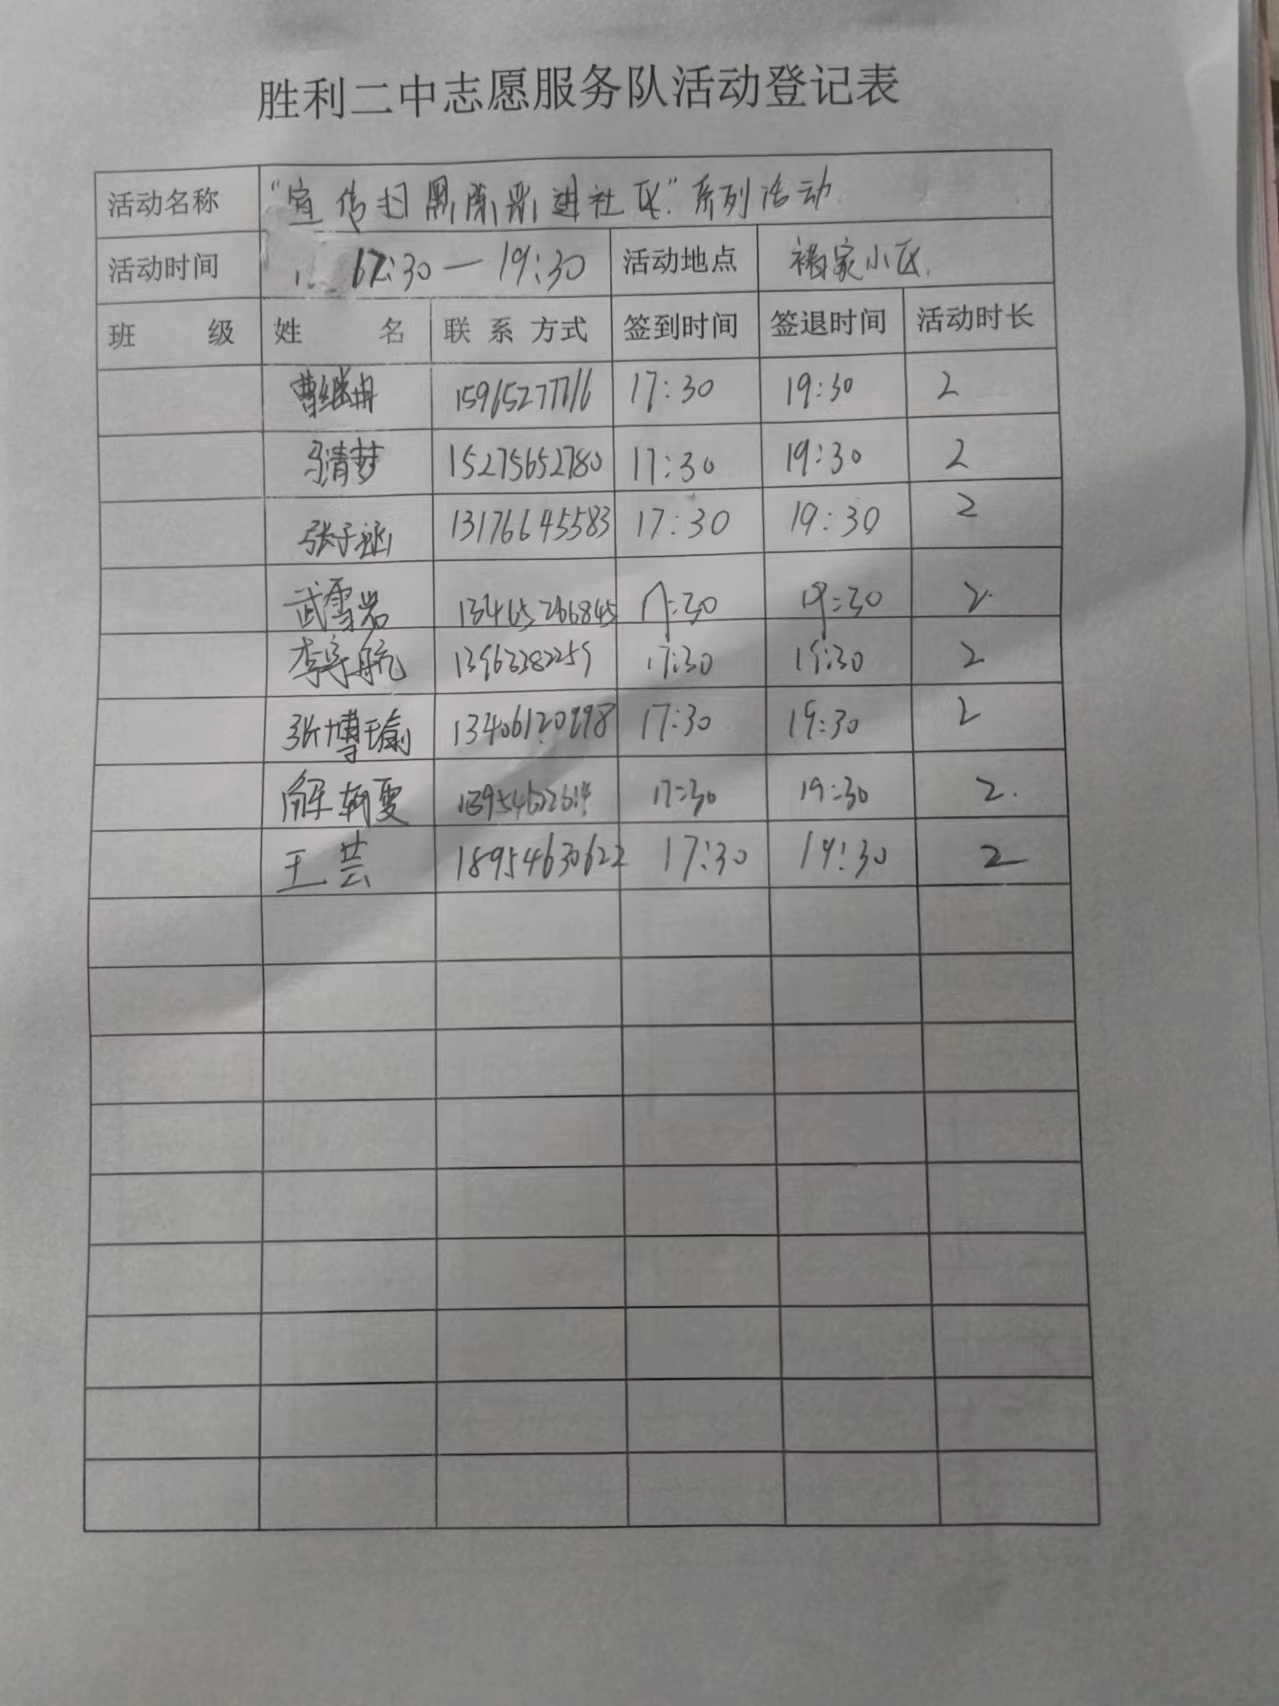 胜利二中志愿服务队活动登记表
活动名称 "宣传扫黑除恶进社区"系列活动
活动时间 17:30—19:30 活动地点 家小区.
班 级 姓 名 联 系 方式 签到时间 签退时间 活动时长
曹继冉 15965277716 17:30 19:30 2
马清梦 15275652780 17:30 19:30 2
张子涵 13176645583 17:30 19:30 2
武雪岩 13465266845 17:30 19:30 2
李宇航 13963382259 17:30 19:30 2
张博瑜 13406120998 17:30 19:30 2
解朝雯 17:30 19:30 2.
王芸 18954630622 17:30 19:30 2